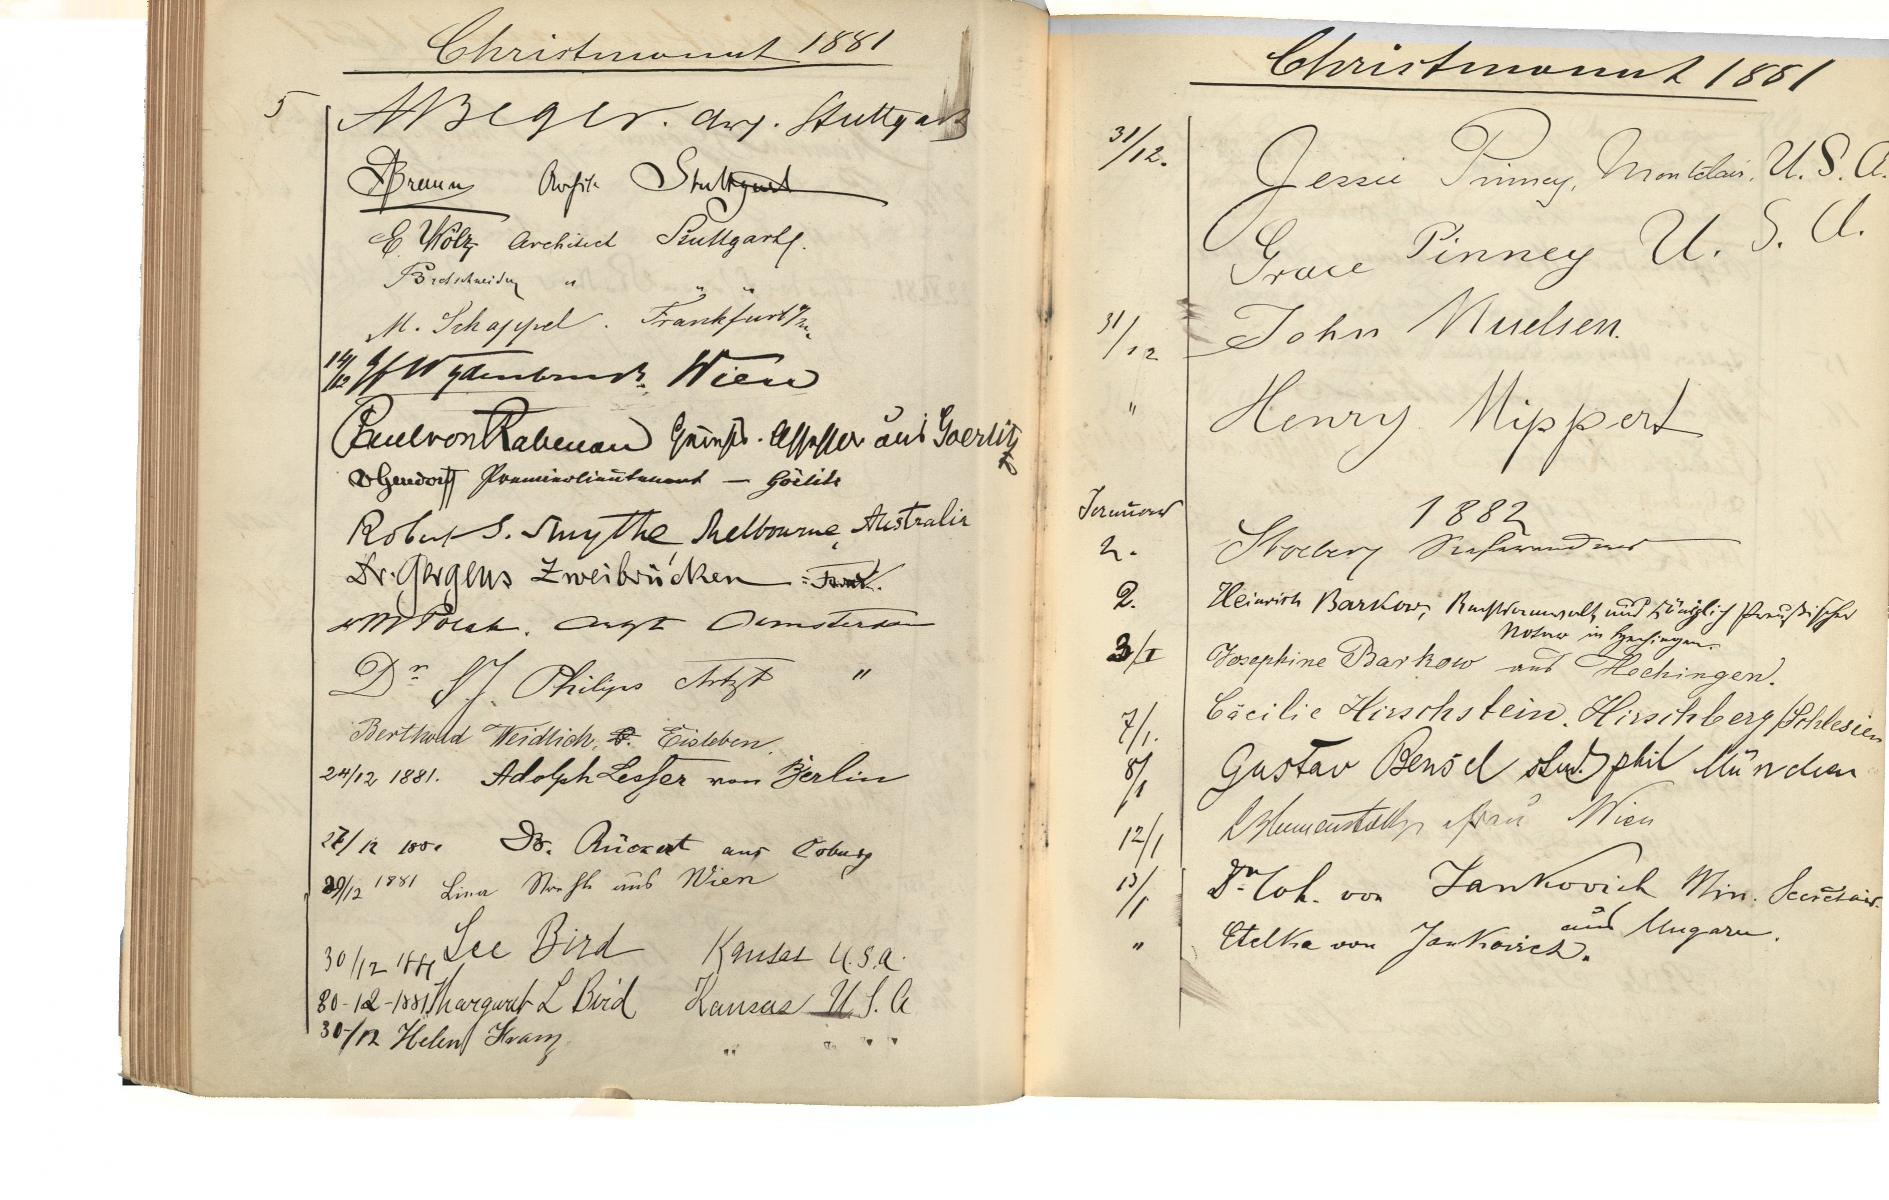 Christmonat 1881
5 Beger. Stuttgart
Braun Stuttgart
E. Wölz Architect Stuttgart.
Bretschneider " " "
M. Schappel. Frankfurt a/M.
14/12 Wien
Paul von Rabenau Assessor aus Goerlitz
Premierlieutenant — Görlitz
Robert S. Smythe Melbourne, Australia
Dr. Gergens Zweibrücken
Arzt Amsterdam
Dr. Philips Artzt "
Berthold Weidlich, Eisleben.
24/12 1881. Adolph Lesser von Berlin
27/12 Dr. Rückert aus Coburg
29/12 1881 Lina aus Wien
30/12 1881 Lee Bird Kansas U.S.A.
30-12-1881 Margaret L Bird Kansas U.S.A
30/12 Helen Kranz " " " "
Christmonat 1881
31/12. Jessie Pinney, Montclair, U.S.A.
Grace Pinney U.S.A.
31/12 John Nuelsen.
" Henry Nippert
1882
Januar
2. Referendar
2. Heinrich Barkow, Rechtsanwalt und Königlich Preußischer
Notar in Hechingen.
3/I Josephine Barkow aus Hechingen.
7/1. Cäcilie Hirschstein. Hirschberg/Schlesien
8/1 Gustav Bensel stud. phil München
12/1 Wien
13/1 Dr. Joh. von Jankovich Min. Secretair.
aus Ungarn.
" Etelka von Jankovich.